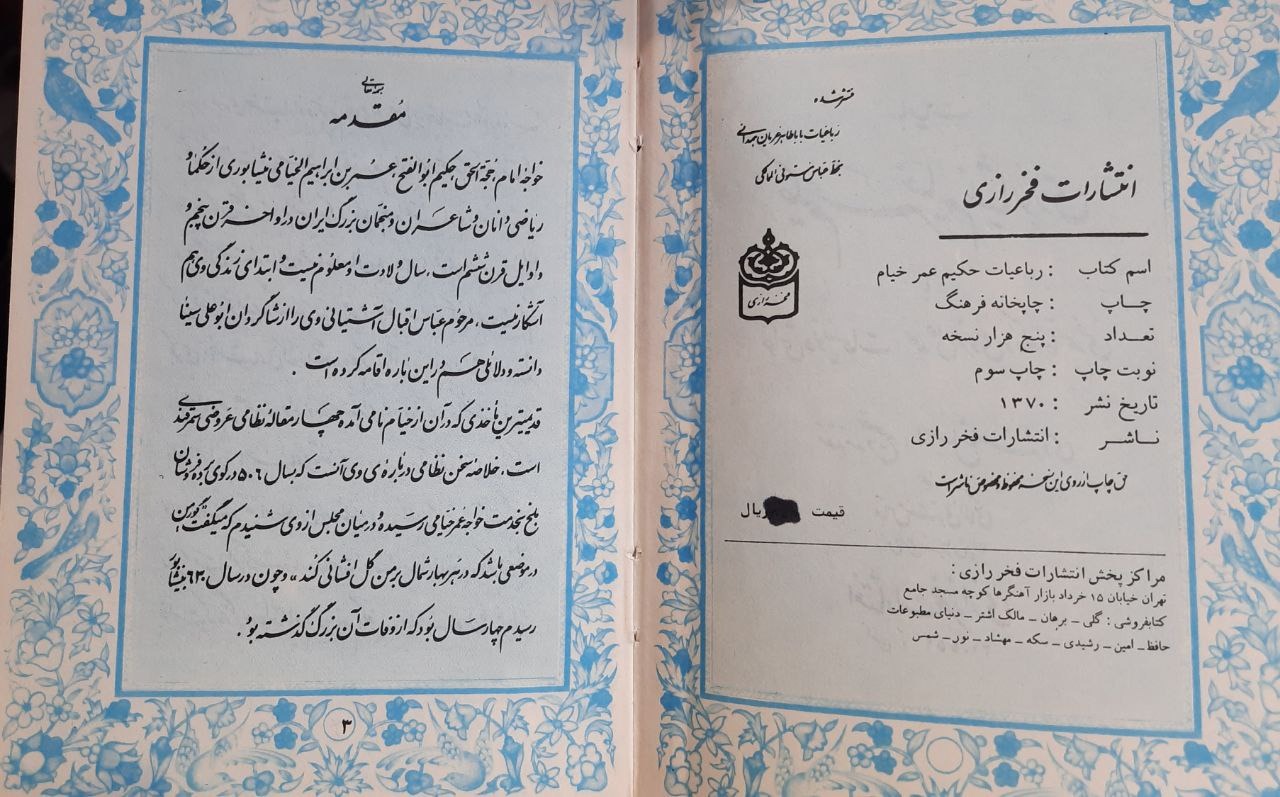 منتشر شده
رباعیات باباطاهر عریان همدانی
بخط عباس مستوفی الممالکی
انتشارات فخر رازی
فخر رازی
اسم کتاب : رباعیات حکیم عمر خیام
چاپ : چاپخانه فرهنگ
تعداد : پنج هزار نسخه
نوبت چاپ : چاپ سوم
تاریخ نشر : ۱۳۷۰
ناشر : انتشارات فخر رازی
حق چاپ از روی این نسخه محفوظ و مخصوص ناشر است
قیمت ریال
مراکز پخش انتشارات فخر رازی :
تهران خیابان ۱۵ خرداد بازار آهنگرها کوچه مسجد جامع
کتابفروشی : گلی ـ برهان ـ مالک اشتر ـ دنیای مطبوعات
حافظ ـ امین ـ رشیدی ـ سکه ـ مهشاد ـ نور ـ شمس
بسمه تعالی
مُقدمه
خواجه امام، حُجة الحق، حکیم ابوالفتح، عمر بن ابراهیم الخیامی نیشابوری از حکما و
ریاضی دانان و شاعران و منجمان بزرگ ایران در اواخر قرن پنجم و
و اوایل قرن ششم است، سال ولادت او معلوم نیست و ابتدای زندگی وی هم
آشکار نیست، مرحوم عباس اقبال آشتیانی وی را از شاگردان ابوعلی سینا
دانسته و دلائلی هم در این باره اقامه کرده است .
قدیمیترین مأخذی که در آن از خیام نامی آمده چهار مقاله نظامی عروضی سمرقندی
است، خلاصه سخن نظامی درباره‌ی وی آنست که بسال ۵۰۶ در کوی برده فروشان
بلخ بخدمت خواجه عمر خیامی رسیده و در میان مجلس از وی شنیدم که میگفت «گور من
در موضعی باشد که در هر بهار شمال بر من گل افشانی کُند» و چون در سال ۵۳۰ بنیشابور
رسیدم چهار سال بود که از وفات آن بزرگ گذشته بود .
۳